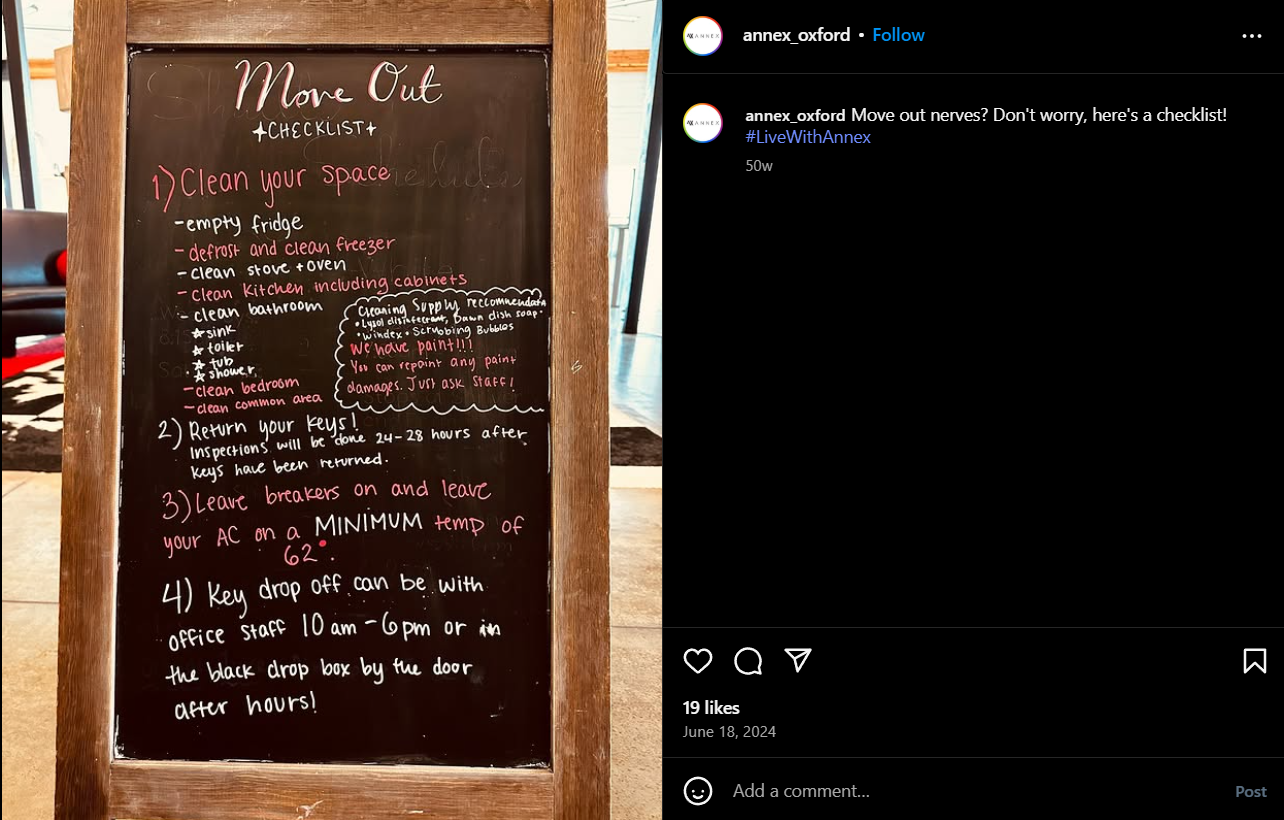 Move Out
CHECKLIST
1) Clean your space
- empty fridge
- defrost and clean freezer
- clean stove + oven
- clean Kitchen including cabinets
- clean bathroom
☆ sink
☆ toilet
☆ tub
☆ shower
- clean bedroom
- clean common area
Cleaning Supply reccommendatn
• Lysol disinfectant, Dawn dish soap •
• Windex • Scrubbing Bubbles
We have paint!!!
You can repaint any paint
damages. Just ask Staff!
2) Return your keys!
Inspections will be done 24-28 hours after
keys have been returned.
3) Leave breakers on and leave
your AC on a MINIMUM temp of
62°.
4) Key drop off can be with
office staff 10 am - 6 pm or in
the black drop box by the door
after hours!
ANNEX
annex_oxford • Follow
ANNEX
annex_oxford Move out nerves? Don't worry, here's a checklist!
#LiveWithAnnex
50w
19 likes
June 18, 2024
Add a comment...
Post